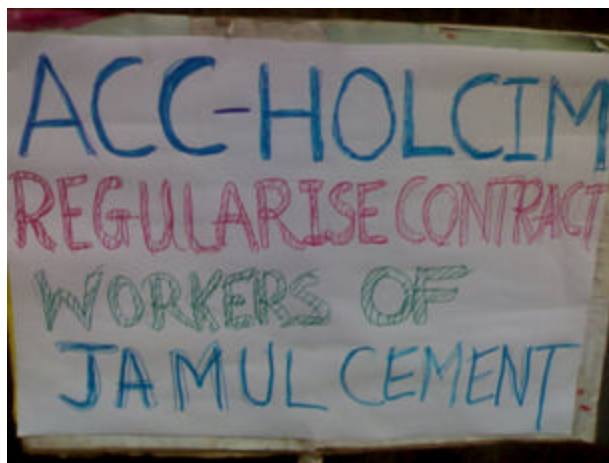 ACC-HOLCIM
REGULARISE CONTRACT
WORKERS OF
JAMUL CEMENT